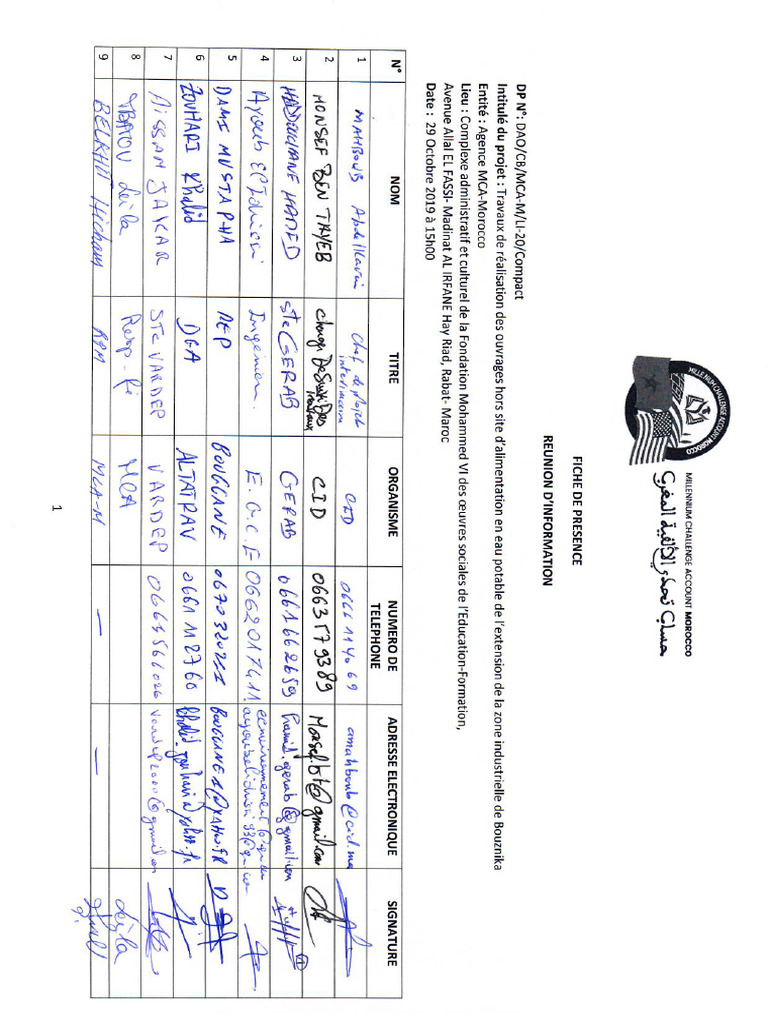 MILLENNIUM CHALLENGE ACCOUNT MOROCCO
حساب تحدي الألفية المغرب
MILLENNIUM CHALLENGE ACCOUNT MOROCCO
FICHE DE PRESENCE
REUNION D'INFORMATION
DP N°: DAO/CB/MCA-M/LI-20/Compact
Intitulé du projet : Travaux de réalisation des ouvrages hors site d'alimentation en eau potable de l'extension de la zone industrielle de Bouznika
Entité : Agence MCA-Morocco
Lieu : Complexe administratif et culturel de la Fondation Mohammed VI des œuvres sociales de l'Education-Formation,
Avenue Allal EL FASSI- Madinat AL IRFANE Hay Riad, Rabat- Maroc
Date : 29 Octobre 2019 à 15h00
N° NOM TITRE ORGANISME NUMERO DE TELEPHONE ADRESSE ELECTRONIQUE SIGNATURE
1 MAHBOUB Abdelkarim Chef de projet intérimaire CID 0666 11 40 69 amahboub@cid.ma
2 MONSEF BEN TAYEB CID 0663579389
3 HADDOUCHANE HAMED Ste GERAB GERAB 0661662659 hamid.gerab@gmail.com
4 Ayoub El Idrissi Ingénieur. E.G.C.E 0662017411
5 DAMI MUSTAPHA BOUGGANE 0670320211
6 ZOUHARI Khalid DGA ALTATRAV 0661112760
7 AISSAM JAKAR STE VARDEP VARDEP 0661566026 vardep2000@gmail.com
8 TBATOU Leila Resp-fi MCA Leila
9 BELKHIL Hicham RPM MCA-M — —
1